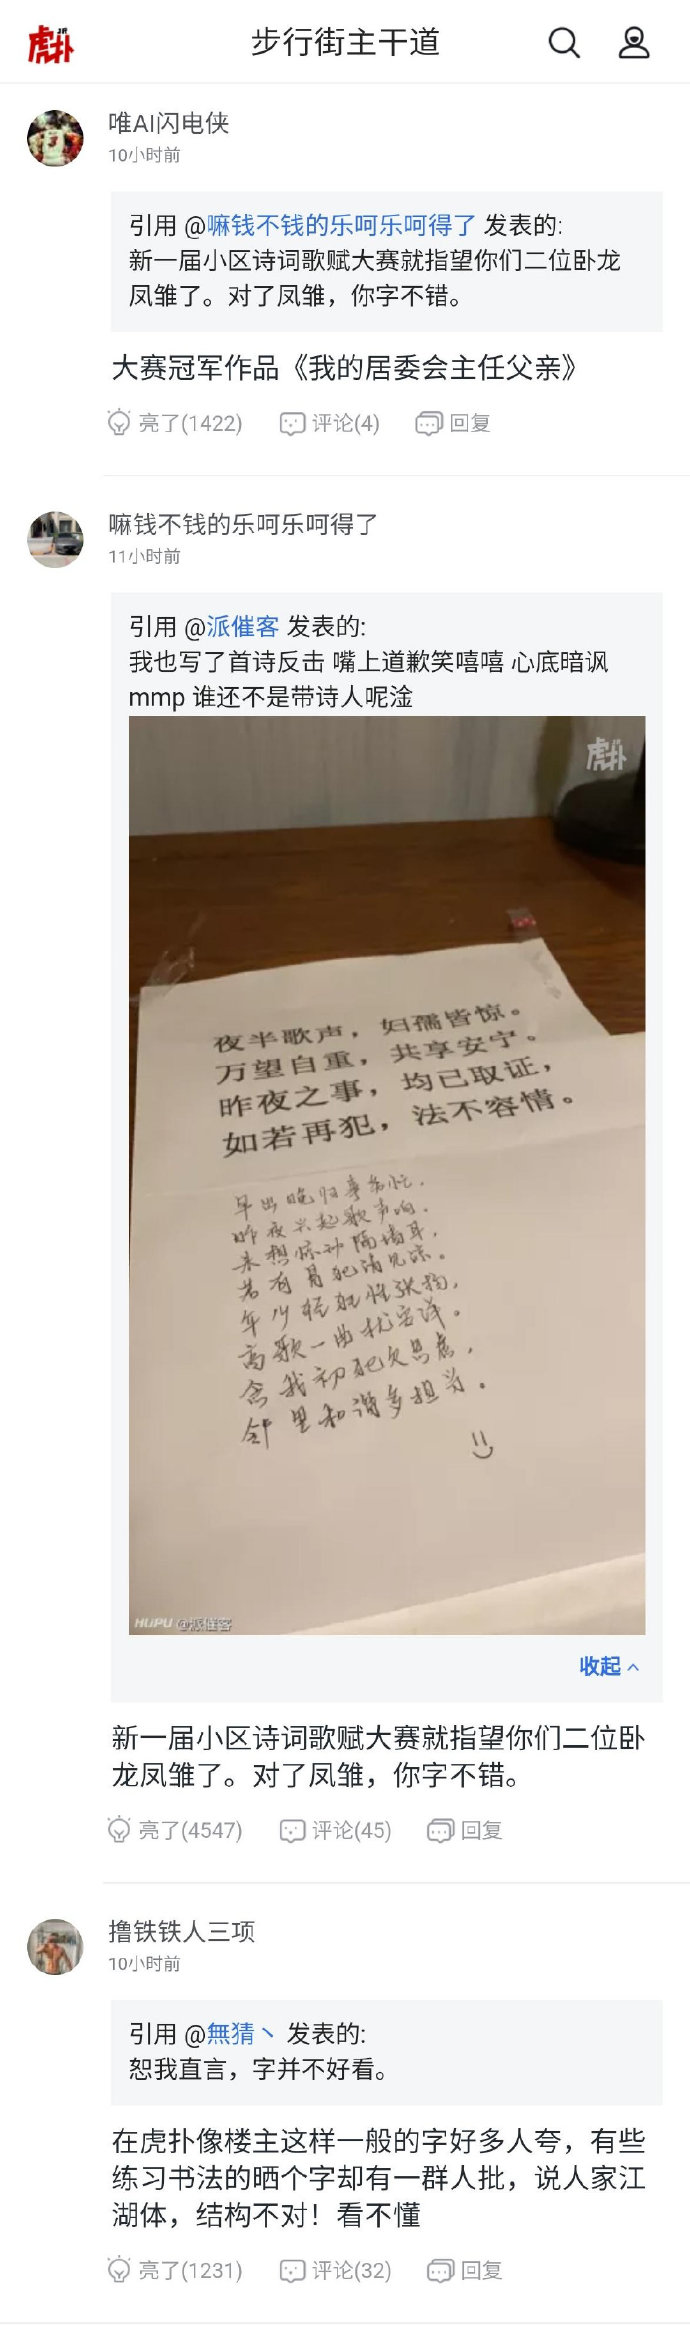 虎扑
JR
步行街主干道
唯AI闪电侠
10小时前
引用 @嘛钱不钱的乐呵乐呵得了 发表的:
新一届小区诗词歌赋大赛就指望你们二位卧龙
凤雏了。对了凤雏，你字不错。
大赛冠军作品《我的居委会主任父亲》
亮了(1422) 评论(4) 回复
嘛钱不钱的乐呵乐呵得了
11小时前
引用 @派催客 发表的:
我也写了首诗反击 嘴上道歉笑嘻嘻 心底暗讽
mmp 谁还不是带诗人呢淦
虎扑
JR
夜半歌声，妇孺皆惊。
万望自重，共享安宁。
昨夜之事，均已取证，
如若再犯，法不容情。
早出晚归事务忙，
昨夜兴起歌声响。
未想惊动隔墙耳，
若有冒犯请见谅。
年少轻狂性张扬，
高歌一曲扰宫洋。
念我初犯欠思虑，
邻里和谐多担当。
HUPU @派催客
收起
新一届小区诗词歌赋大赛就指望你们二位卧
龙凤雏了。对了凤雏，你字不错。
亮了(4547) 评论(45) 回复
撸铁铁人三项
10小时前
引用 @無猜丶 发表的:
恕我直言，字并不好看。
在虎扑像楼主这样一般的字好多人夸，有些
练习书法的晒个字却有一群人批，说人家江
湖体，结构不对！看不懂
亮了(1231) 评论(32) 回复